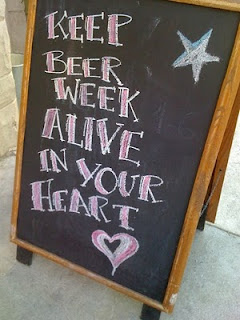 KEEP
BEER
WEEK
ALIVE
IN YOUR
HEART